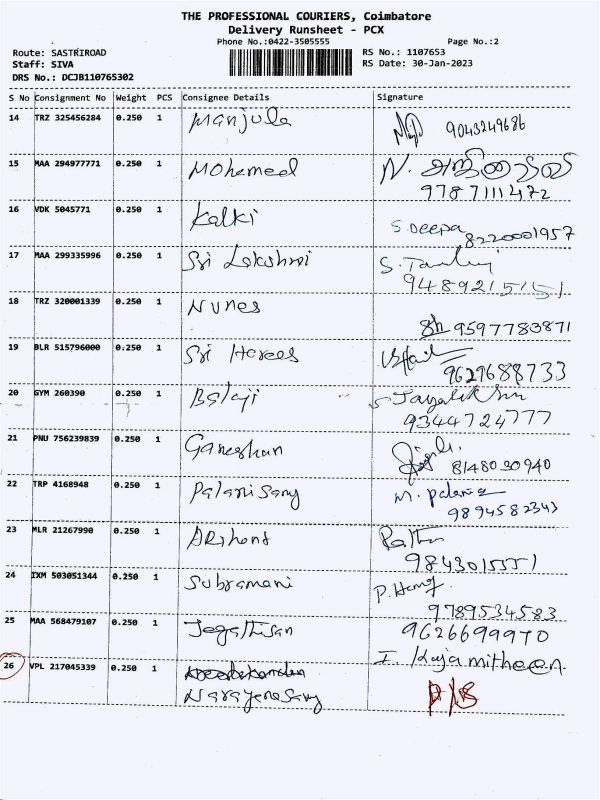 THE PROFESSIONAL COURIERS, Coimbatore
Delivery Runsheet - PCX
Phone No.:0422-3505555 Page No.:2
Route: SASTRIROAD RS No.: 1107653
Staff: SIVA RS Date: 30-Jan-2023
DRS No.: DCJB110765302
S No Consignment No Weight PCS Consignee Details Signature
14 TRZ 325456284 0.250 1 Manjula 9043249686
15 MAA 294977771 0.250 1 Mohameed N.
9787111472
16 VDK 5045771 0.250 1 Kalki S. Deepa
8220001957
17 MAA 299335996 0.250 1 Sri Lakshmi S.
9489215151
18 TRZ 320001339 0.250 1 Nunes
9597783871
19 BLR 515796000 0.250 1 Sri Harees
9629688733
20 GYM 260390 0.250 1 Balaji
9344724777
21 PNU 756239839 0.250 1 Ganeshan
8148030940
22 TRP 4168948 0.250 1 Palanisamy M.
9894582343
23 MLR 21267990 0.250 1 Arihant
9843015551
24 IXM 503051344 0.250 1 Subramani P.
9789534583
25 MAA 568479107 0.250 1 Jegathisan 9626699970
I. Kajamitheen
26 VPL 217045339 0.250 1
Narayanasamy